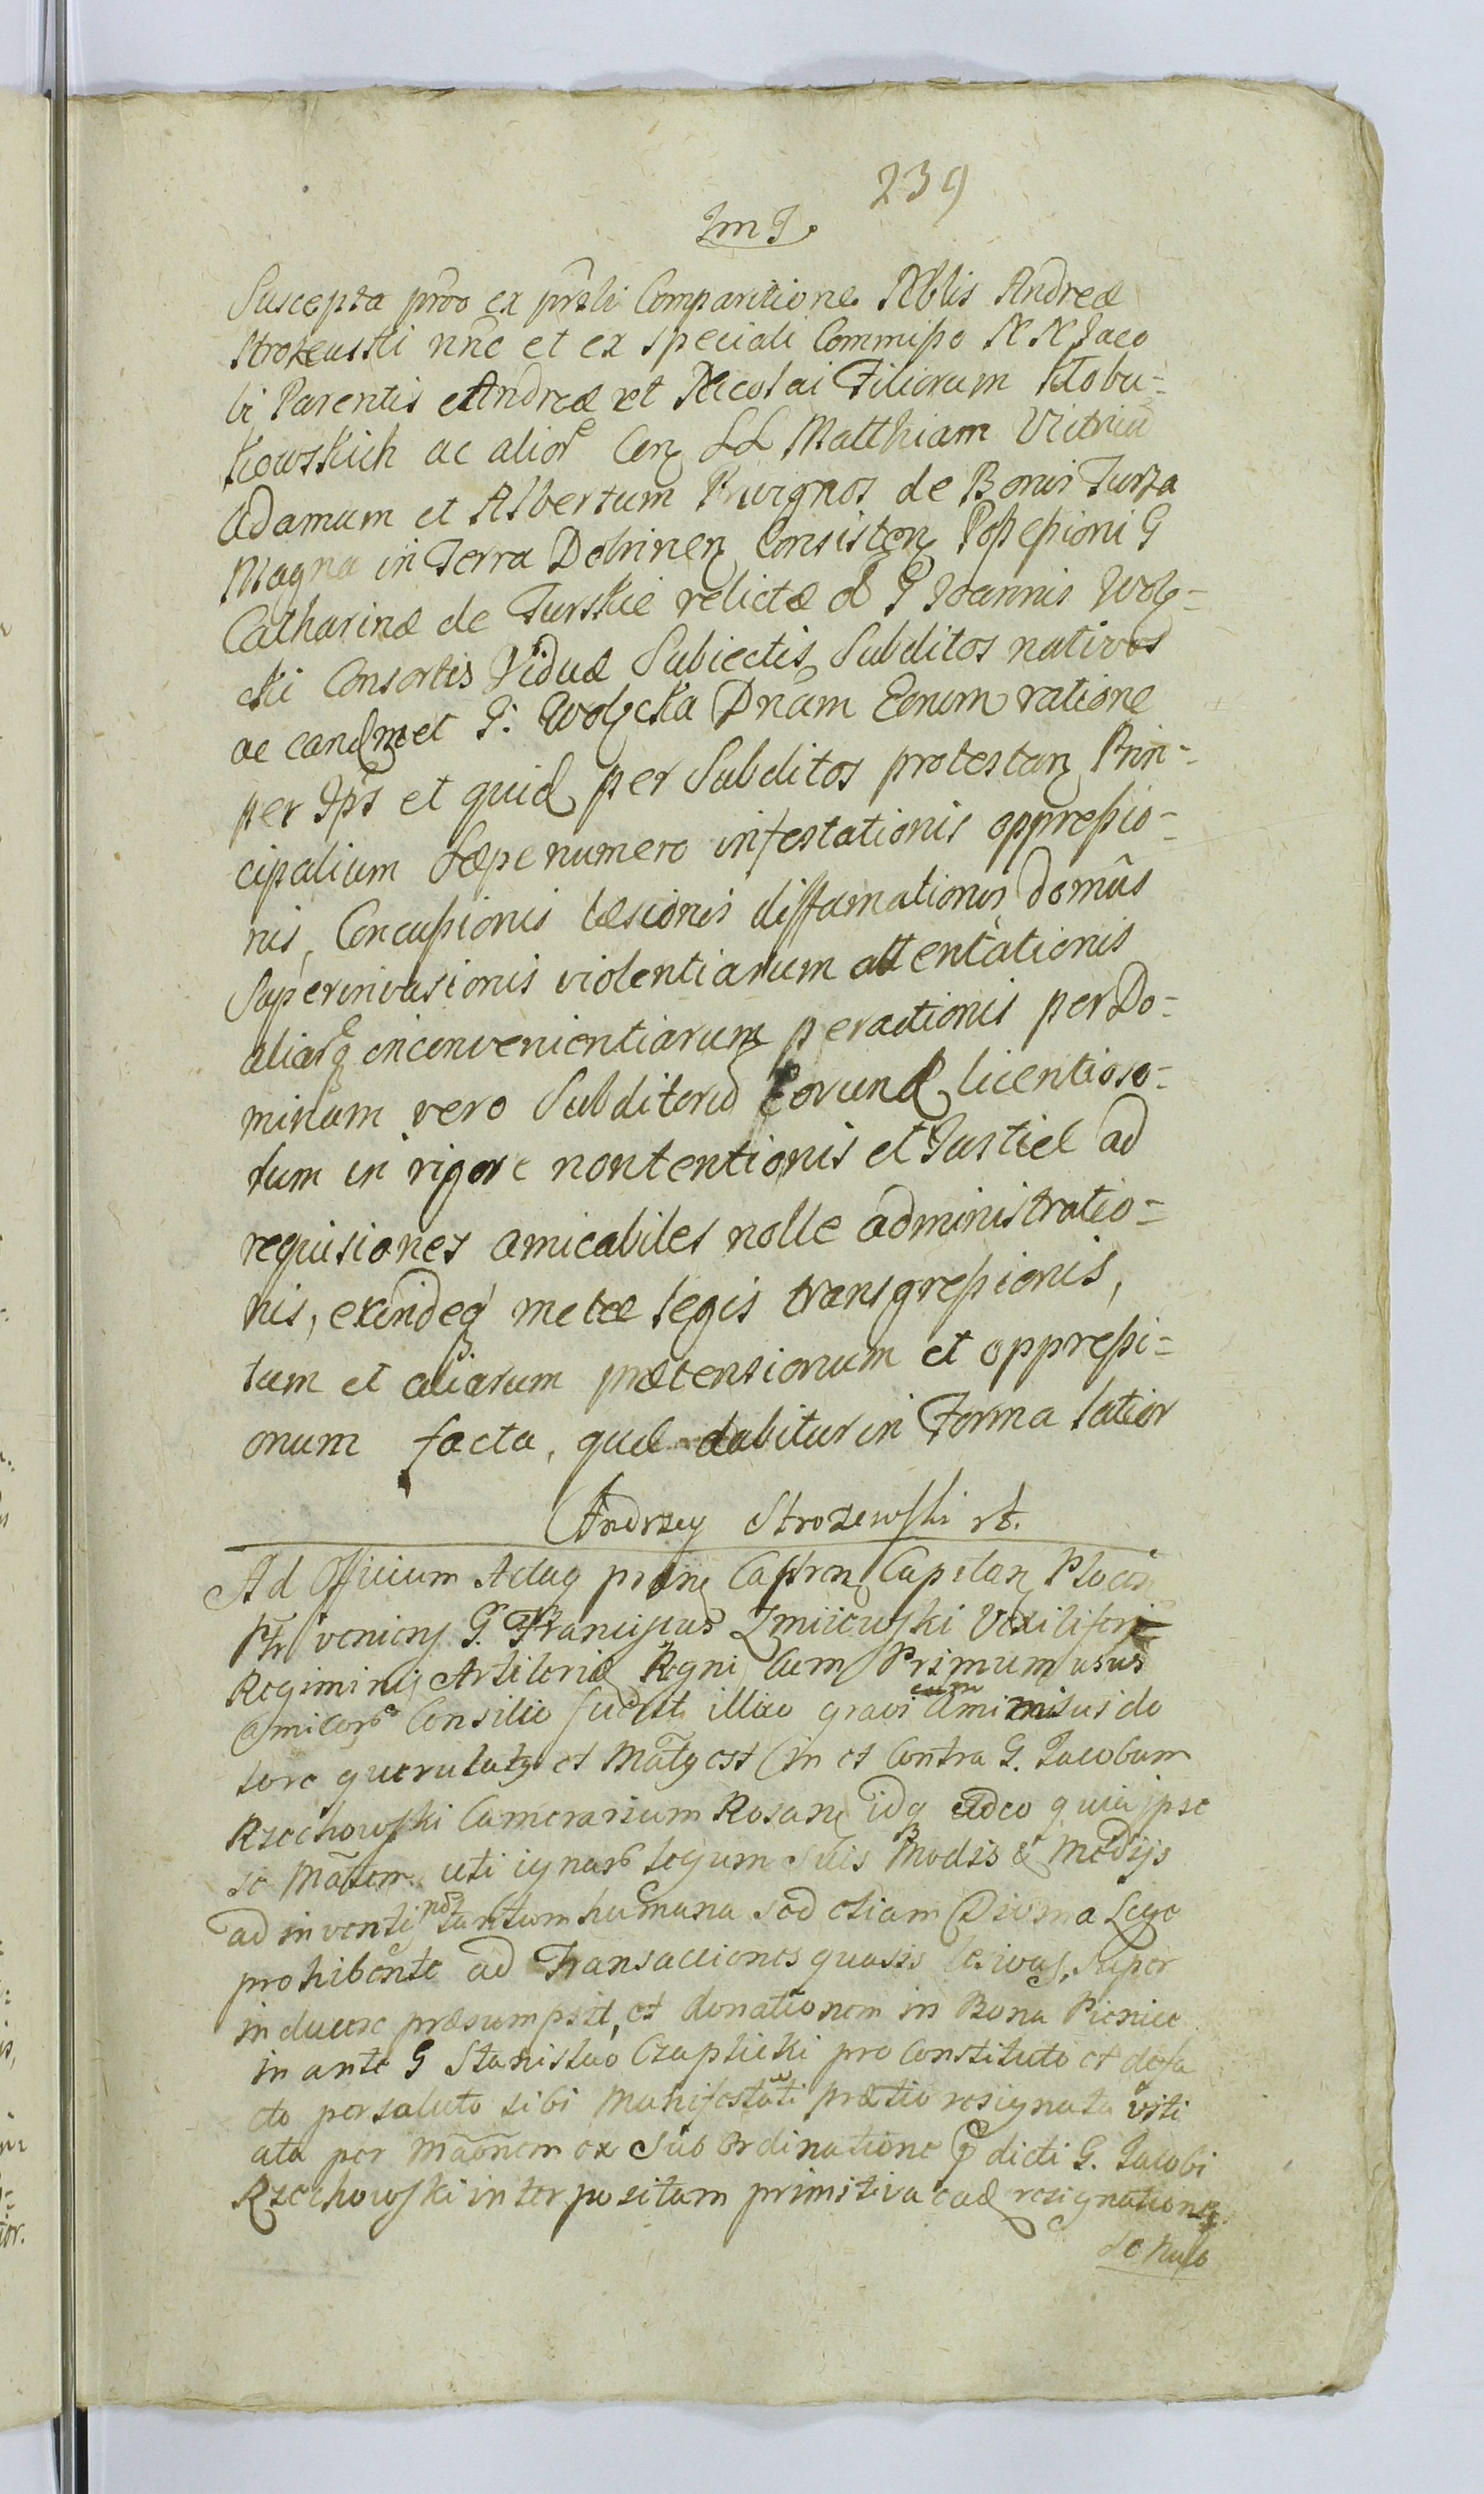 239
Im J.
Suscepta proo ex prsli Comparitione Nblis Andreæ
Strozewski nnc et ex speciali Commisso N N Jaco
bi Parentis et Andreæ et Nicolai Filiorum Kłobu=
kowskich ac alior Con LL Matthiam Vitricu
Adamum et Albertum Privignos de Bonis Turza
Magna in Terra Dobrinen Consisten Possessioni G
Catharinæ de Turskie relictæ ol G Joannis Wolz=
cki Consortis Viduæ Subiectis Subditos nativos
ac eandmet G: Wolzcka Dnam Eorum ratione
per Ips et quid per Subditos protestan Prin=
cipalium Sæpenumero infestationis oppressio=
nis, Concussionis læsionis diffamationis domûs
Superinvasionis violentiarum attentationis
aliarq inconvenientiarum peractionis per Do=
minam vero Subditoru Eorund licentioso=
rum in rigore nontentionis et Justiæ ad
requisiones amicabiles nolle administratio=
nis, exindeq metæ legis transgressionis,
tum et aliarum prætensionum et oppressi=
onum facta, quæ dabitur in Forma latior
Andrzey Strozewski rt.
Ad Officium Actaq præn Castren Capitan Plocen
Pslr veniens G. Franciscus Zmiiewski Vexilifer
Regiminis Artileriæ Regni Cum Primum usus
Amicor Consilio fuerit illico gravi cum Animi sui do
lore querulatq et Matg est in et Contra G. Jacobum
Rzechowski Camerarium Rosan idq adeo quia ipse
se Mātem uti ignar legum Suis Modis & Medijs
ad inventi non tantum humana sed etiam Divina Lege
prohibente ad Transactiones quasis lesivas, Super
inducere præsumpsit, et donationem in Bona Pienice
in ante G Stanislao Czaplicki pro Constituto et defa
cto persoluto sibi Manifestati prætio resignata viti
ata per Māonem ex Sub Ordinatione p dicti G. Jacobi
Rzechowski interpositam primitiva ead resignatione
de Nulo